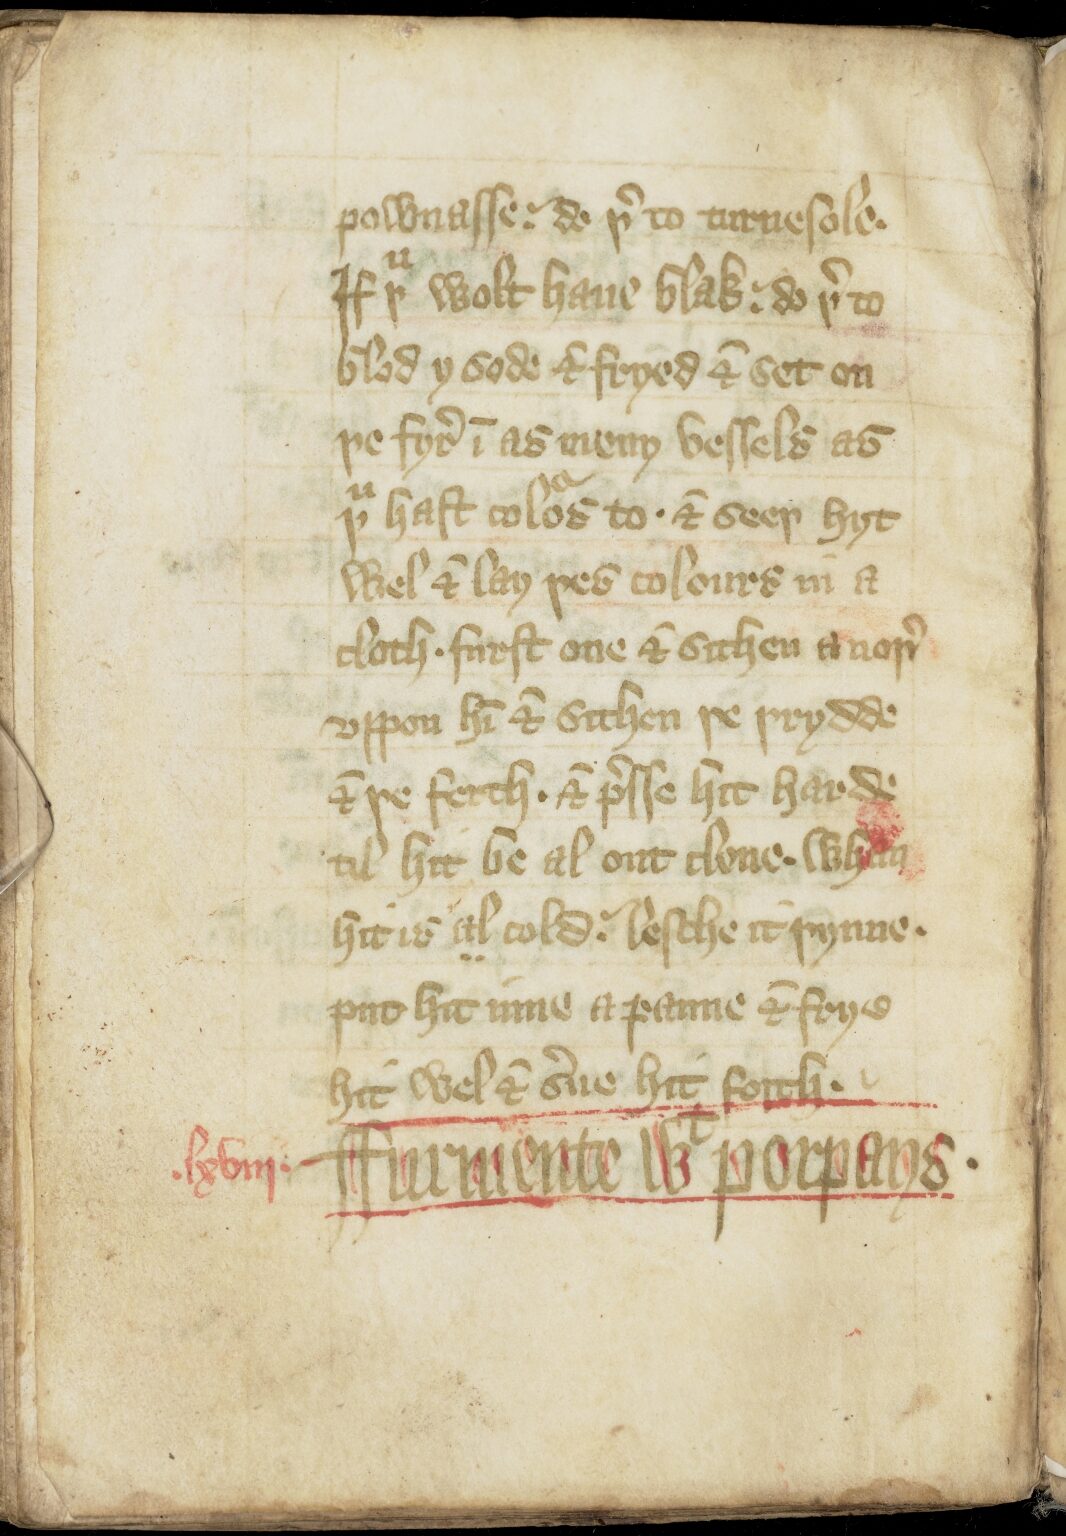 pownasse. do þ̉ to turnesole.
If þͧ wolt haue blak. do þ̉ to
blod y sode & fryed & set on
þe fyr̉ ī as meny vessels as
þͧ hast coloᷣs to. & seeþ hyt
wel & lay þes colours in a
cloth. furst one & sithen a noþ̉
vppon hī & sithen þe þrydde
& þe ferth. & p̉sse hit harde
til hit be al out clene. Whan
hit is al cold. lesche it þynne.
put hit inne a panne & frye
hit wel & s̉ue hit forth.
.lxviii. Ffurmente wᵗ porpays.